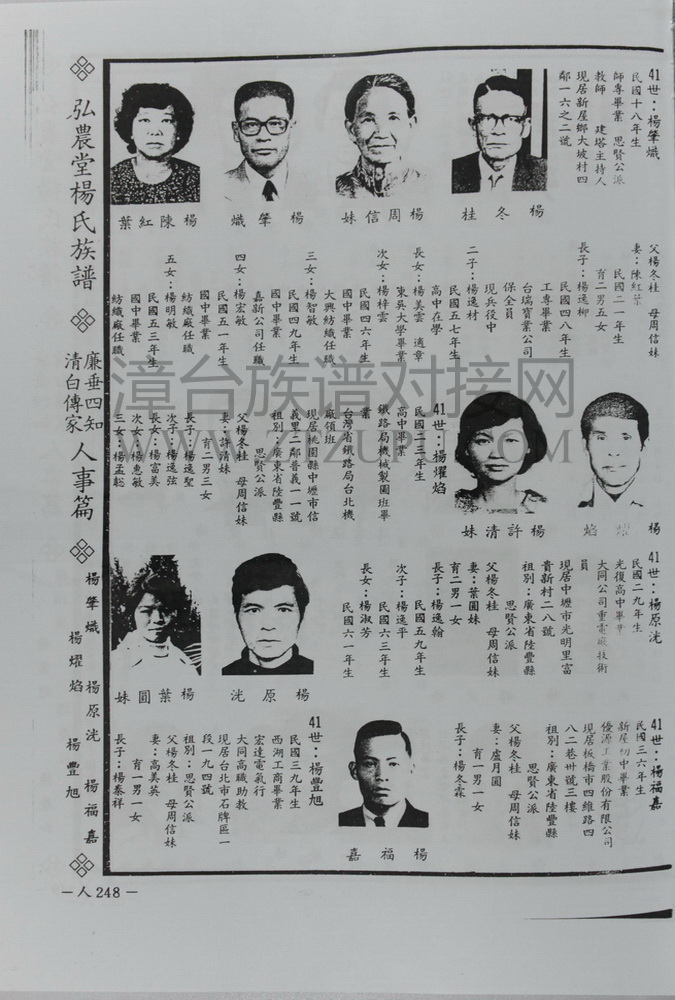 弘農堂楊氏族譜
廉垂四知
清白傳家
人事篇
楊肇熾
楊耀焰
楊原洸
楊豐旭
楊福嘉
－人248－
41世：楊肇熾
民國十八年生
師專畢業　思賢公派
教師　建塔主持人
現居新屋鄉大坡村四
鄰一六之二號
楊冬桂
楊周信妹
楊肇熾
楊陳紅葉
父楊冬桂　母周信妹
妻：陳紅葉
民國二一年生
育二男五女
長子：楊逸柳
民國四八年生
工專畢業
台瑞寶業公司
保全員
現兵役中
二子：楊逸材
民國五七年生
高中在學
長女：楊美雲　適章
東吳大學畢業
次女：楊梓雲
民國四六年生
國中畢業
大興紡織任職
三女：楊智敏
民國四九年生
國中畢業
嘉新公司任職
四女：楊宏敏
民國五一年生
國中畢業
紡織廠任職
五女：楊明敏
民國五三年生
國中畢業
紡織廠任職
楊　焰
楊許清妹
41世：楊耀焰
民國二三年生
高中畢業
鐵路局機械製圖班畢
業
台灣省鐵路局台北機
廠領班
現居桃園縣中壢市信
義里二鄰普義一一號
祖別：廣東省陸豐縣
思賢公派
父楊冬桂　母周信妹
妻：許清妹
育二男三女
長子：楊逸聖
次子：楊逸弦
長女：楊富美
次女：楊惠敏
三女：楊孟聡
41世：楊原洸
民國二九年生
光復高中畢業
大同公司重電廠技術
員
現居中壢市光明里富
貴新村二八號
祖別：廣東省陸豐縣
思賢公派
父楊冬桂　母周信妹
妻：葉圓妹
育二男一女
長子：楊逸翰
民國五九年生
次子：楊逸平
民國六三年生
長女：楊淑芳
民國六一年生
楊原洸
楊葉圓妹
41世：楊福嘉
民國三六年生
新屋初中畢業
優源工業股份有限公司
現居板橋市四維路四
八二巷卅號三樓
祖別：廣東省陸豐縣
思賢公派
父楊冬桂　母周信妹
妻：盧月圓
育一男一女
長子：楊冬霖
楊福嘉
41世：楊豐旭
民國三九年生
西湖工商畢業
宏達電氣行
大同高職助教
現居台北市石牌區一
段一九四號
祖別：思賢公派
父楊冬桂　母周信妹
妻：高美英
育一男一女
長子：楊泰祥
漳台族谱对接网
WWW.ZTZUPU.COM